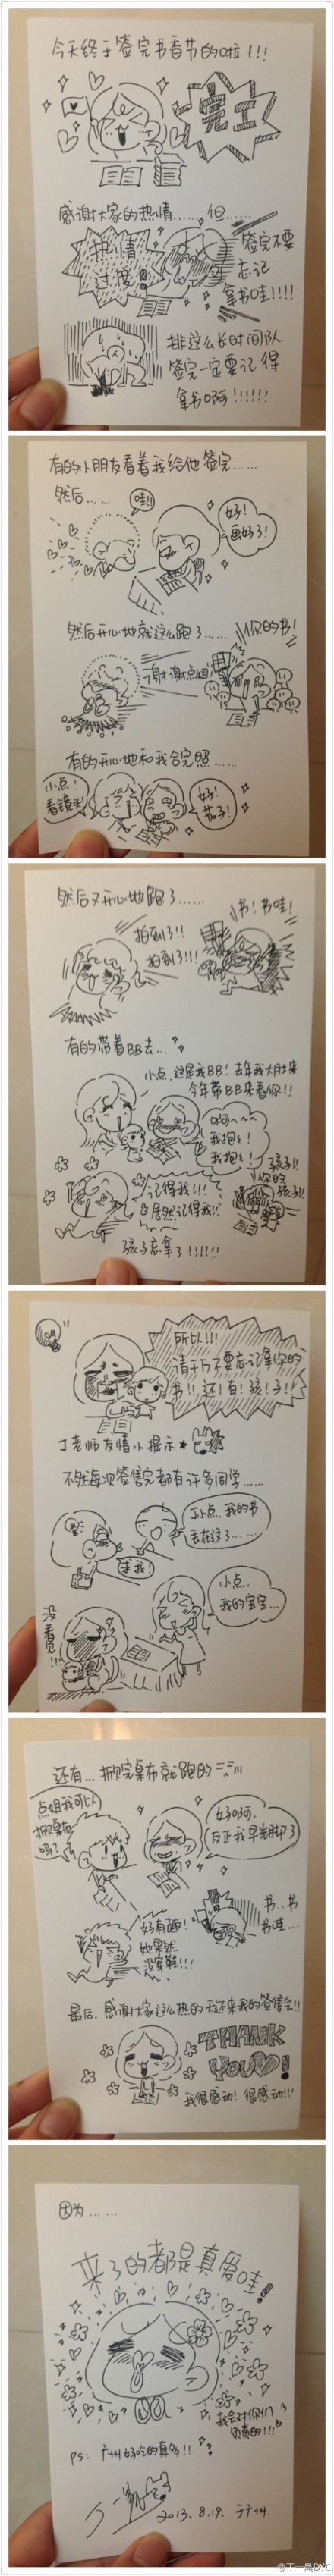 今天终于签完书香节的啦！！！
完工
感谢大家的热情……但……
热情
过度！
签完不要
忘记
拿书哇！！！！
排这么长时间队
签完一定要记得
拿书啊！！！！！！
有的小朋友看着我给他签完……
然后……
哇!!
好！
画好了！
然后开心地就这么跑了……
你的书！
谢谢点姐！
有的开心地和我合完照……
小点！
看镜头！
好！
茄子！
然后又开心地跑了……
书！书哇！
拍到了！！
拍到了！！！
有的带着BB去…
小点，这是我BB！去年我大肚来
今年带BB来看你！！
啊~~~
我抱抱！
我抱抱！
记得我！！！
居然记得我！！
孩子！！
你的
孩子！！
孩子忘拿了！！！！！！
所以！！！
请千万不要忘记拿你的
书！！还！有！孩！子！！
丁老师友情小提示★
不然每次签售完都有许多同学……
丁小点，我的书
丢在这了……
求我！
小点..
我的宝宝…
没看见！！！
还有…掀完桌布就跑的
点姐我可以
掀桌布
吗？
好啊，
反正我早光脚了
好有趣！
她果然
没穿鞋！！！
书..书
书哇…
最后，感谢大家这么热的天还来我的签售会！！
THANK
YOU！
我很感动！很感动！！！
因为……
来了的都是真爱哇！
我会对你们
负责的！！！
PS: 广州好吃的真多！！
2013.8.19. 于广州.
@丁一晨DYC